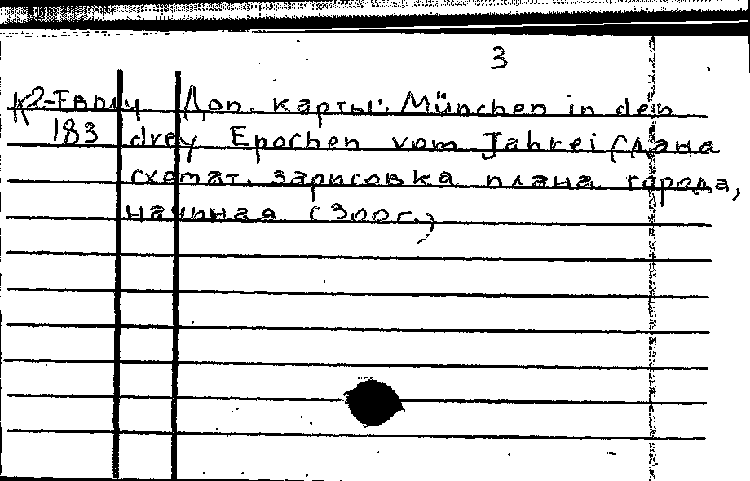 3
К2-Евр 14 Доп. карты: München in den
183 drey Epochen vom Jahre: (дана
схемат. зарисовка плана города,
начиная (300г.)